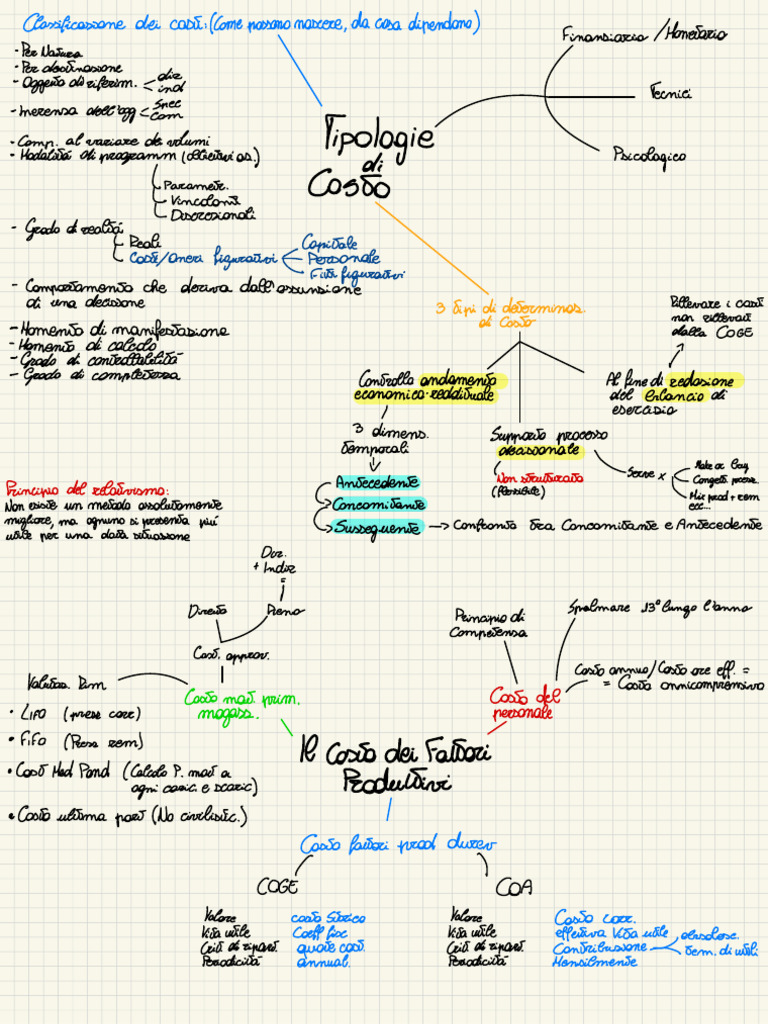 Classificazione dei costi: (Come possono nascere, da cosa dipendono)
- Per Natura
- Per destinazione
- Oggetto di riferim.
dir
ind
- Inerenza dell'ogg
Spec
Com
- Comp. al variare dei volumi
- Modalità di programm (obiettivi az.)
Parametr.
Vincolanti
Discrezionali
- Grado di realità
Reali
Costi/oneri figurativi
Capitale
Personale
Fitti figurativi
- Comportamento che deriva dall'assunzione
di una decisione
- Momento di manifestazione
- Momento di calcolo
- Grado di controllabilità
- Grado di completezza
Tipologie
di
Costo
Finanziario / Monetario
Tecnici
Psicologico
3 tipi di determinaz.
di Costo
Controllo andamento
economico-reddituale
3 dimens.
temporali
Antecedente
Concomitante
Susseguente
Confronto tra Concomitante e Antecedente
Supporto processo
decisionale
Non strutturato
(flessibile)
Serve x
Make or buy
Congett. prezzi
Mix prod + rem
ecc...
Al fine di redazione
del bilancio di
esercizio
Rilevare i costi
non rilevati
dalla COGE
Principio del relativismo:
Non esiste un metodo assolutamente
migliore, ma ognuno si presenta più
utile per una data situazione
Il Costo dei Fattori
Produttivi
Costo mat. prim.
magazz.
Cost. approv.
Diretto
Pieno
=
Dir.
+ Indir
Valutaz. Rim
• LIFO (prezz corr)
• FIFO (Prezz rem)
• Cost Med Pond (Calcolo P. med a
ogni caric. e scaric)
• Costo ultima part (No civilistic.)
Costo del
personale
Principio di
Competenza
Spalmare 13ª lungo l'anno
Costo annuo/Costo ore eff. =
= Costo onnicomprensivo
Costo fattori prod durev
COGE
Valore costo storico
Vita utile Coeff fisc
Crit di ripart. quote cost.
Periodicità annual.
COA
Valore Costo corr.
Vita utile effettiva Vita utile
Crit di ripart. Contribuzione
obsolesc.
tem. di utili
Periodicità Mensilmente